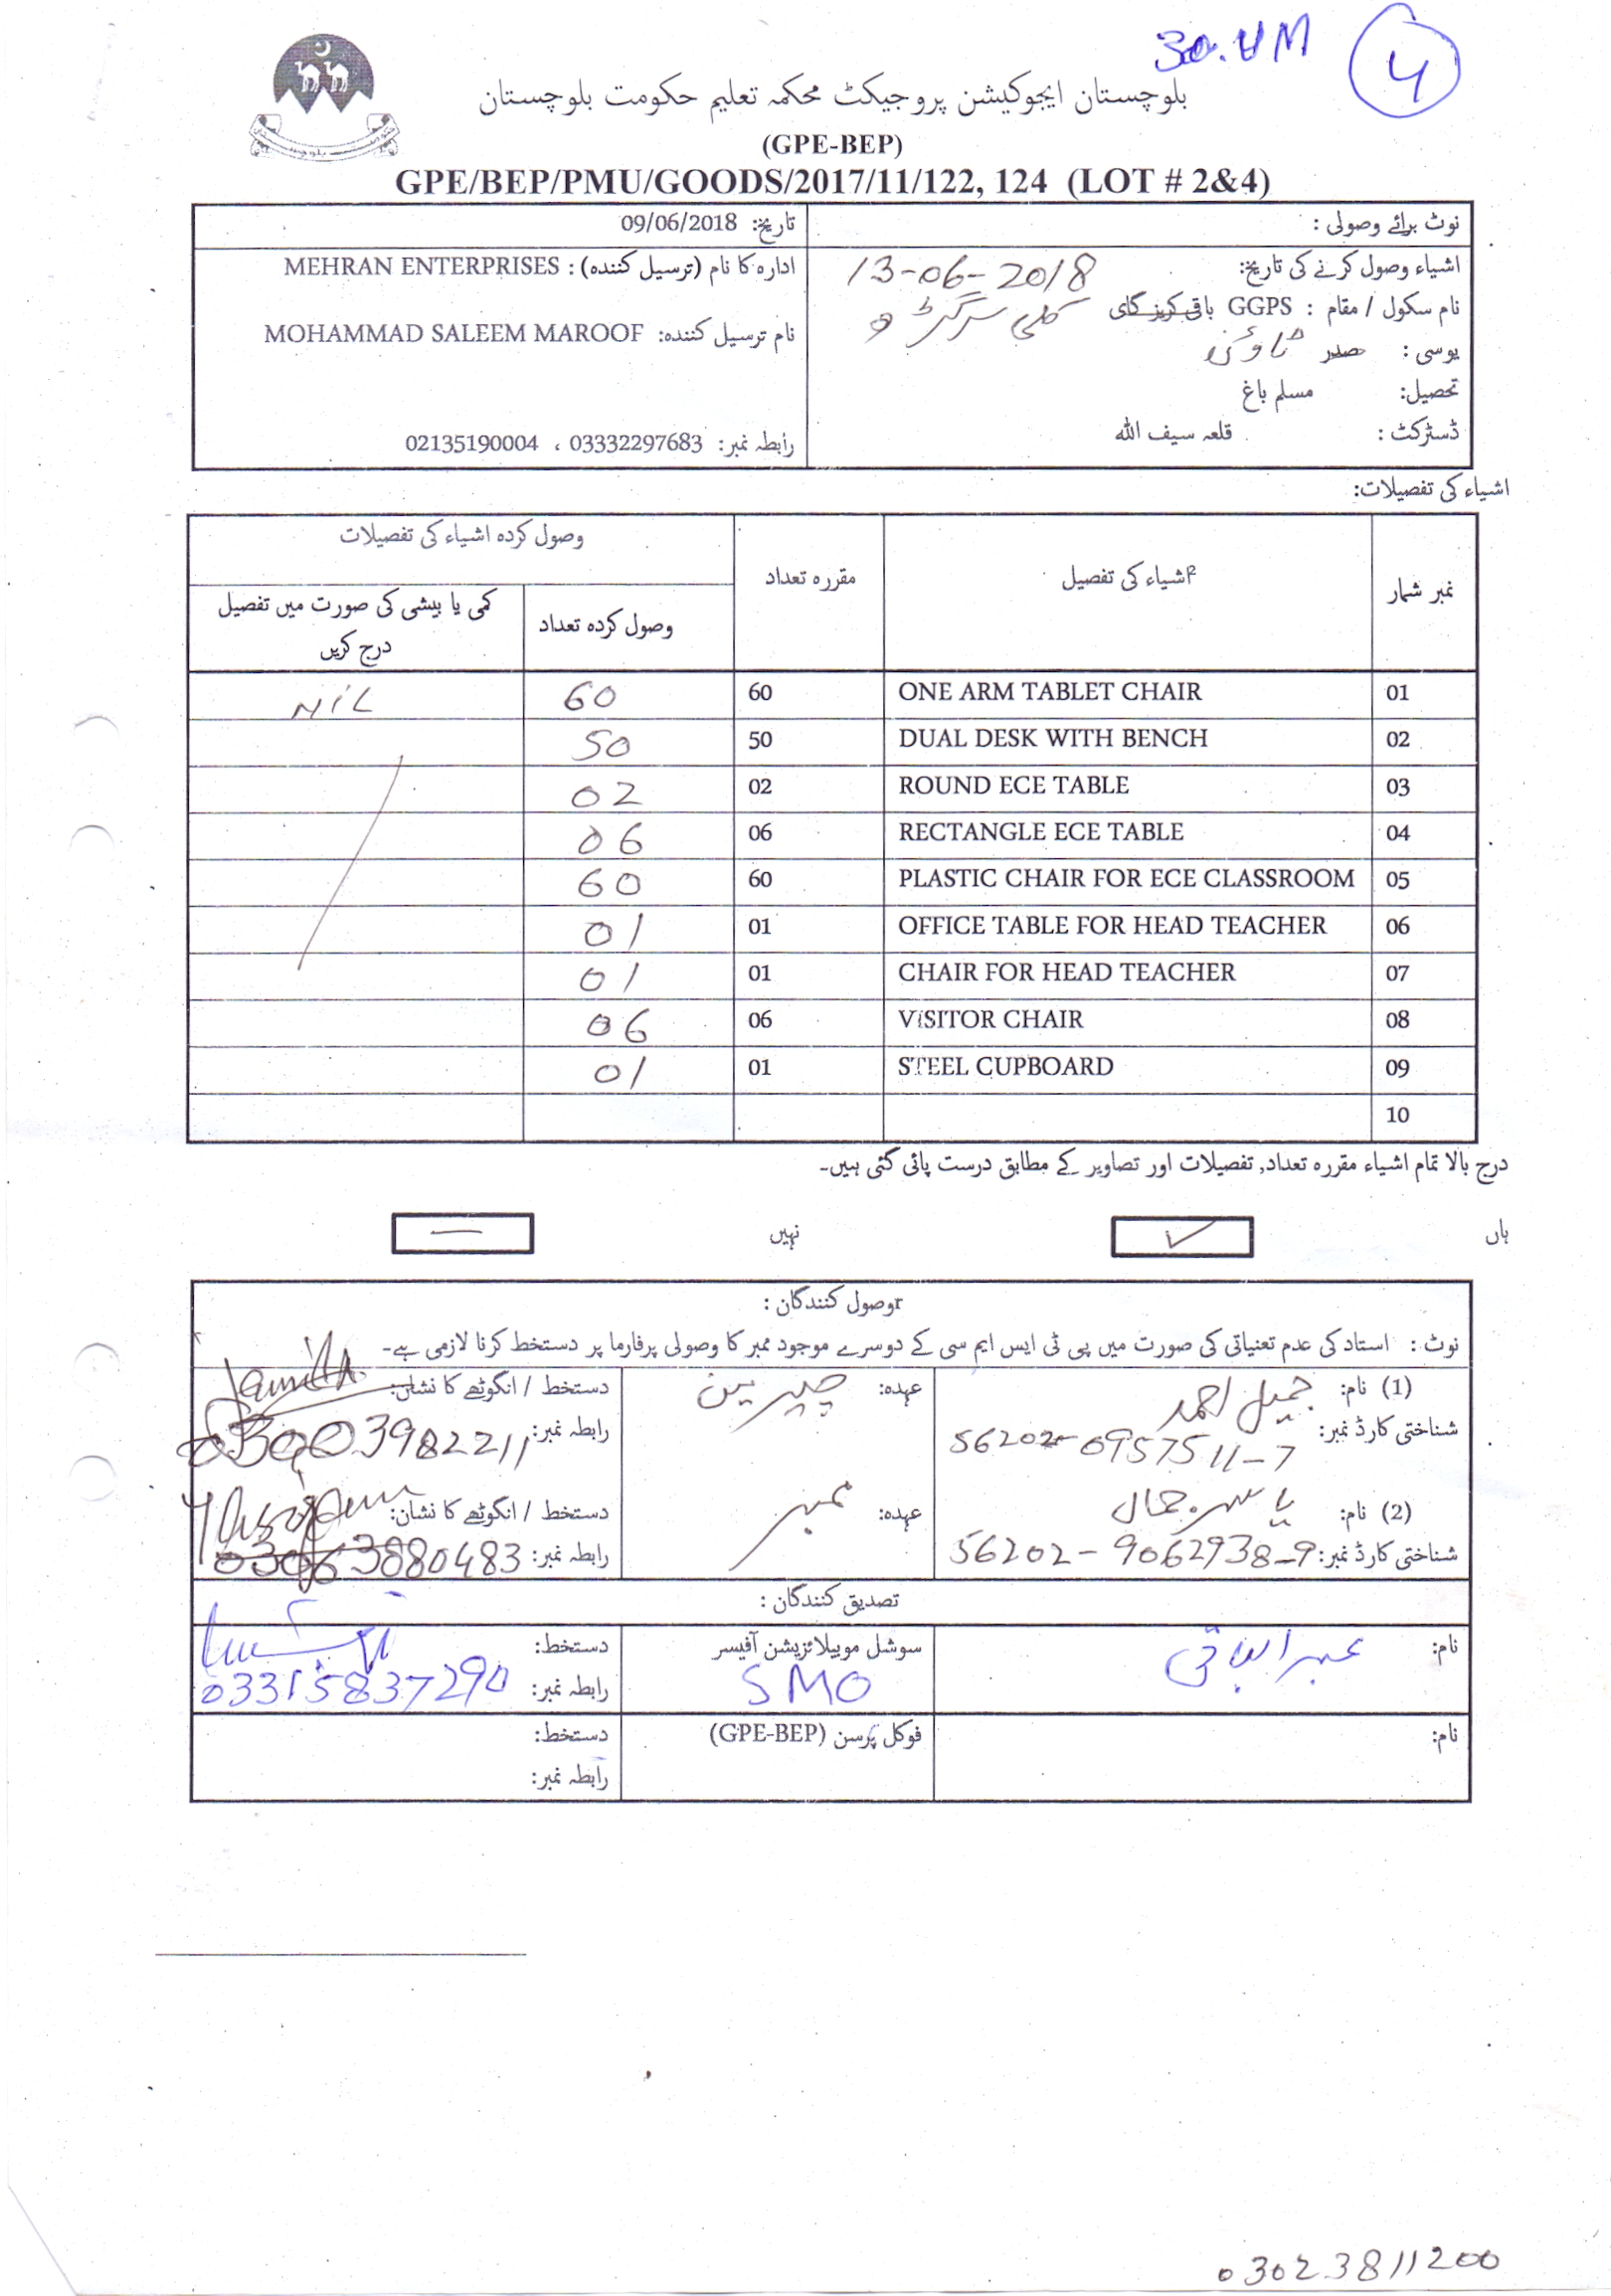 30.
4
بلوچستان ایجوکیشن پروجیکٹ محکمہ تعلیم حکومت بلوچستان
(GPE-BEP)
GPE/BEP/PMU/GOODS/2017/11/122, 124 (LOT # 2&4)
نوٹ برائے وصولی :
تاریخ: 09/06/2018
اشیاء وصول کرنے کی تاریخ: 13-06-2018
ادارہ کا نام (ترسیل کنندہ) : MEHRAN ENTERPRISES
نام سکول / مقام : GGPS باقی کریز گای کلی
نام ترسیل کنندہ: MOHAMMAD SALEEM MAROOF
یوسی : صدر ٹاؤن
تحصیل: مسلم باغ
ڈسٹرکٹ : قلعہ سیف اللہ
رابطہ نمبر: 03332297683 ، 02135190004
اشیاء کی تفصیلات:
نمبر شمار اشیاء کی تفصیل مقررہ تعداد وصول کردہ اشیاء کی تفصیلات
وصول کردہ تعداد کمی یا بیشی کی صورت میں تفصیل درج کریں
01 ONE ARM TABLET CHAIR 60 60 NIL
02 DUAL DESK WITH BENCH 50 50
03 ROUND ECE TABLE 02 02
04 RECTANGLE ECE TABLE 06 06
05 PLASTIC CHAIR FOR ECE CLASSROOM 60 60
06 OFFICE TABLE FOR HEAD TEACHER 01 01
07 CHAIR FOR HEAD TEACHER 01 01
08 VISITOR CHAIR 06 06
09 STEEL CUPBOARD 01 01
10
درج بالا تمام اشیاء مقررہ تعداد, تفصیلات اور تصاویر کے مطابق درست پائی گئی ہیں۔
ہاں ✓ نہیں —
وصول کنندگان :
نوٹ : استاد کی عدم تعنیاتی کی صورت میں پی ٹی ایس ایم سی کے دوسرے موجود ممبر کا وصولی پرفارما پر دستخط کرنا لازمی ہے۔
(1) نام: جمیل احمد عہدہ: چیرمین دستخط / انگوٹھے کا نشان:
شناختی کارڈ نمبر: 56202-0957511-7 رابطہ نمبر: 03003982211
(2) نام: یاسر جمال عہدہ: ممبر دستخط / انگوٹھے کا نشان:
شناختی کارڈ نمبر: 56202-9062938-9 رابطہ نمبر: 03063880483
تصدیق کنندگان :
نام: عبدالباقی سوشل موبیلائزیشن آفیسر دستخط:
SMO رابطہ نمبر: 03315837290
نام: فوکل پرسن (GPE-BEP) دستخط:
رابطہ نمبر:
03023811200